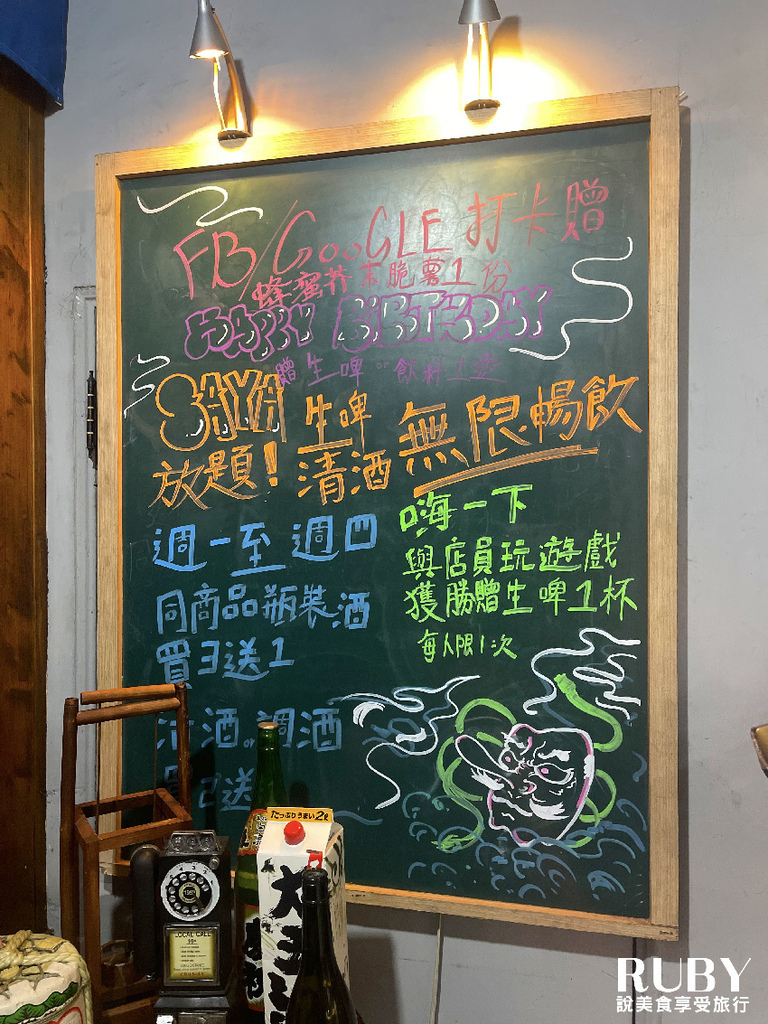 FB/GooGLE 打卡贈
蜂蜜芥末脆薯1份
HAPPY BIRTHDAY
贈生啤or飲料1杯
SAYA 生啤
放題! 清酒 無限暢飲
週一至週四
同商品瓶裝酒
買3送1
清酒or調酒
買2送
嗨一下
與店員玩遊戲
獲勝贈生啤1杯
每人限1次
たっぷりうまい2ℓ
LOCAL CALL
RUBY
說美食享受旅行